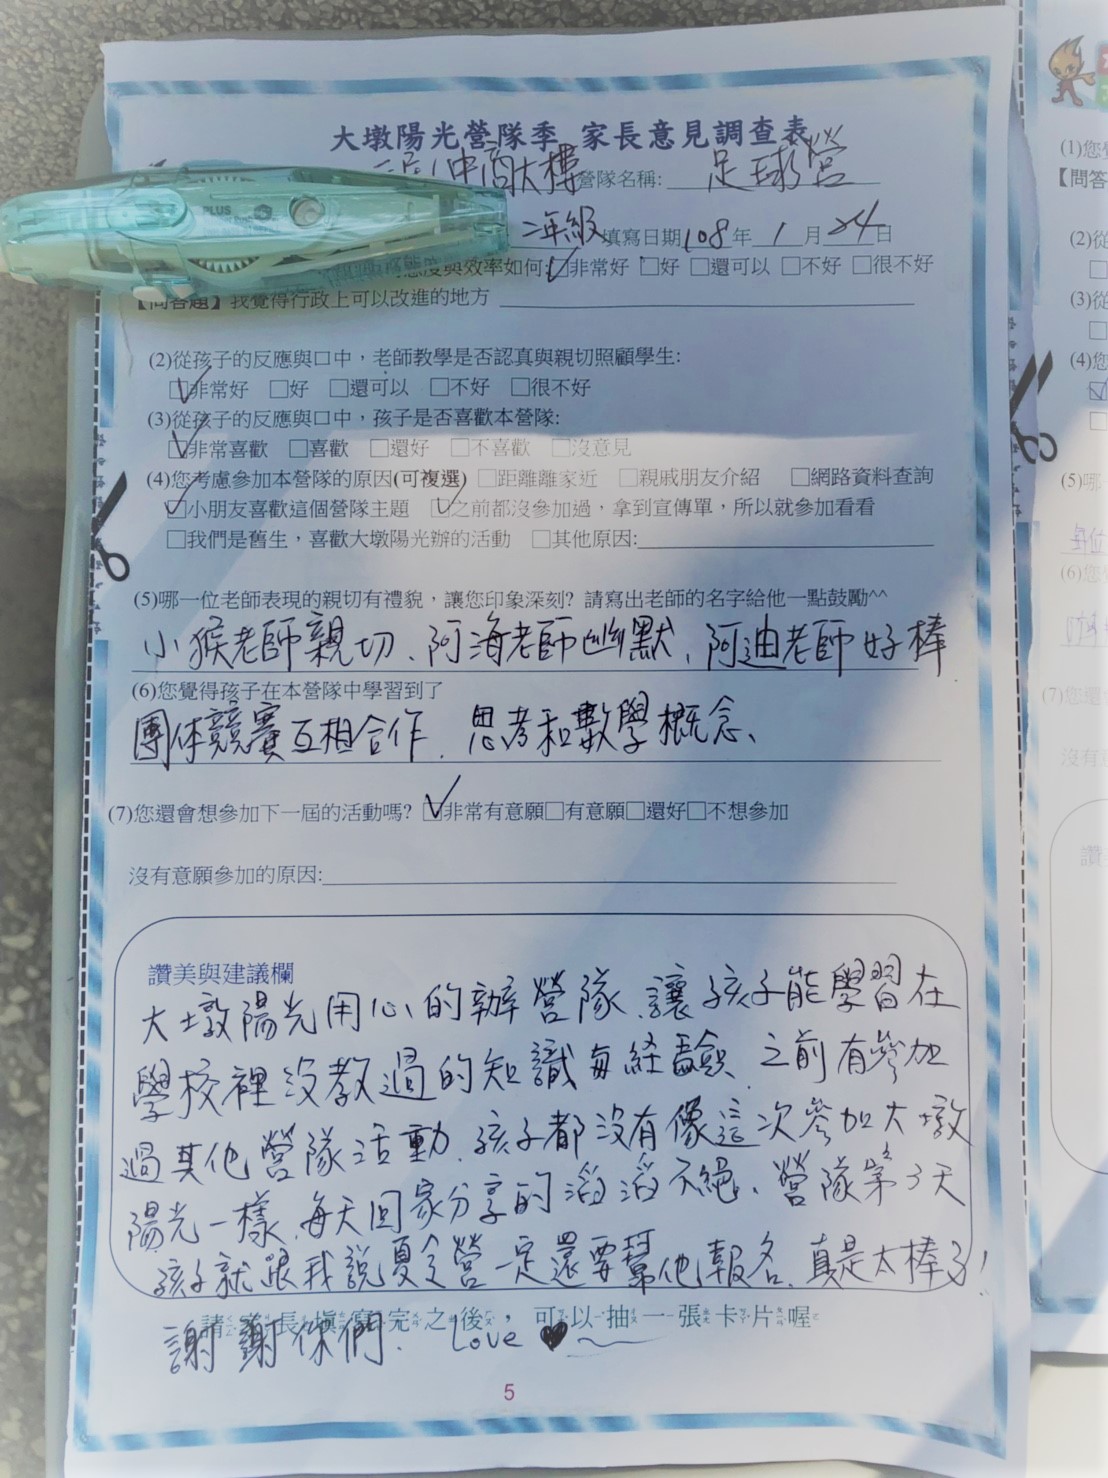 大墩陽光營隊季 家長意見調查表
中商大樓 營隊名稱: 足球營
PLUS
二年級 填寫日期108年1月24日
態度與效率如何:☑非常好 □好 □還可以 □不好 □很不好
【問答題】我覺得行政上可以改進的地方
(2)從孩子的反應與口中，老師教學是否認真與親切照顧學生:
☑非常好 □好 □還可以 □不好 □很不好
(3)從孩子的反應與口中，孩子是否喜歡本營隊:
☑非常喜歡 □喜歡 □還好 □不喜歡 □沒意見
(4)您考慮參加本營隊的原因(可複選) □距離離家近 □親戚朋友介紹 □網路資料查詢
☑小朋友喜歡這個營隊主題 ☑之前都沒參加過，拿到宣傳單，所以就參加看看
□我們是舊生，喜歡大墩陽光辦的活動 □其他原因:
(5)哪一位老師表現的親切有禮貌，讓您印象深刻? 請寫出老師的名字給他一點鼓勵^^
小猴老師親切、阿海老師幽默、阿迪老師好棒
(6)您覺得孩子在本營隊中學習到了
團体競賽互相合作、思考和數學概念、
(7)您還會想參加下一屆的活動嗎? ☑非常有意願□有意願□還好□不想參加
沒有意願參加的原因:
讚美與建議欄
大墩陽光用心的辦營隊、讓孩子能學習在
學校裡沒教過的知識每経驗、之前有參加
過其他營隊活動、孩子都沒有像這次參加大墩
陽光一樣、每天回家分享的滔滔不絕、營隊第3天
孩子就跟我說夏令營一定還要幫他報名、真是太棒了!
請家長填寫完之後，可以抽一張卡片喔
謝謝你們. Love ♥
5
(1)您
【問答
(2)從
(3)從
(4)您
(5)哪
每位
(6)您
(7)您還
沒有意
讚